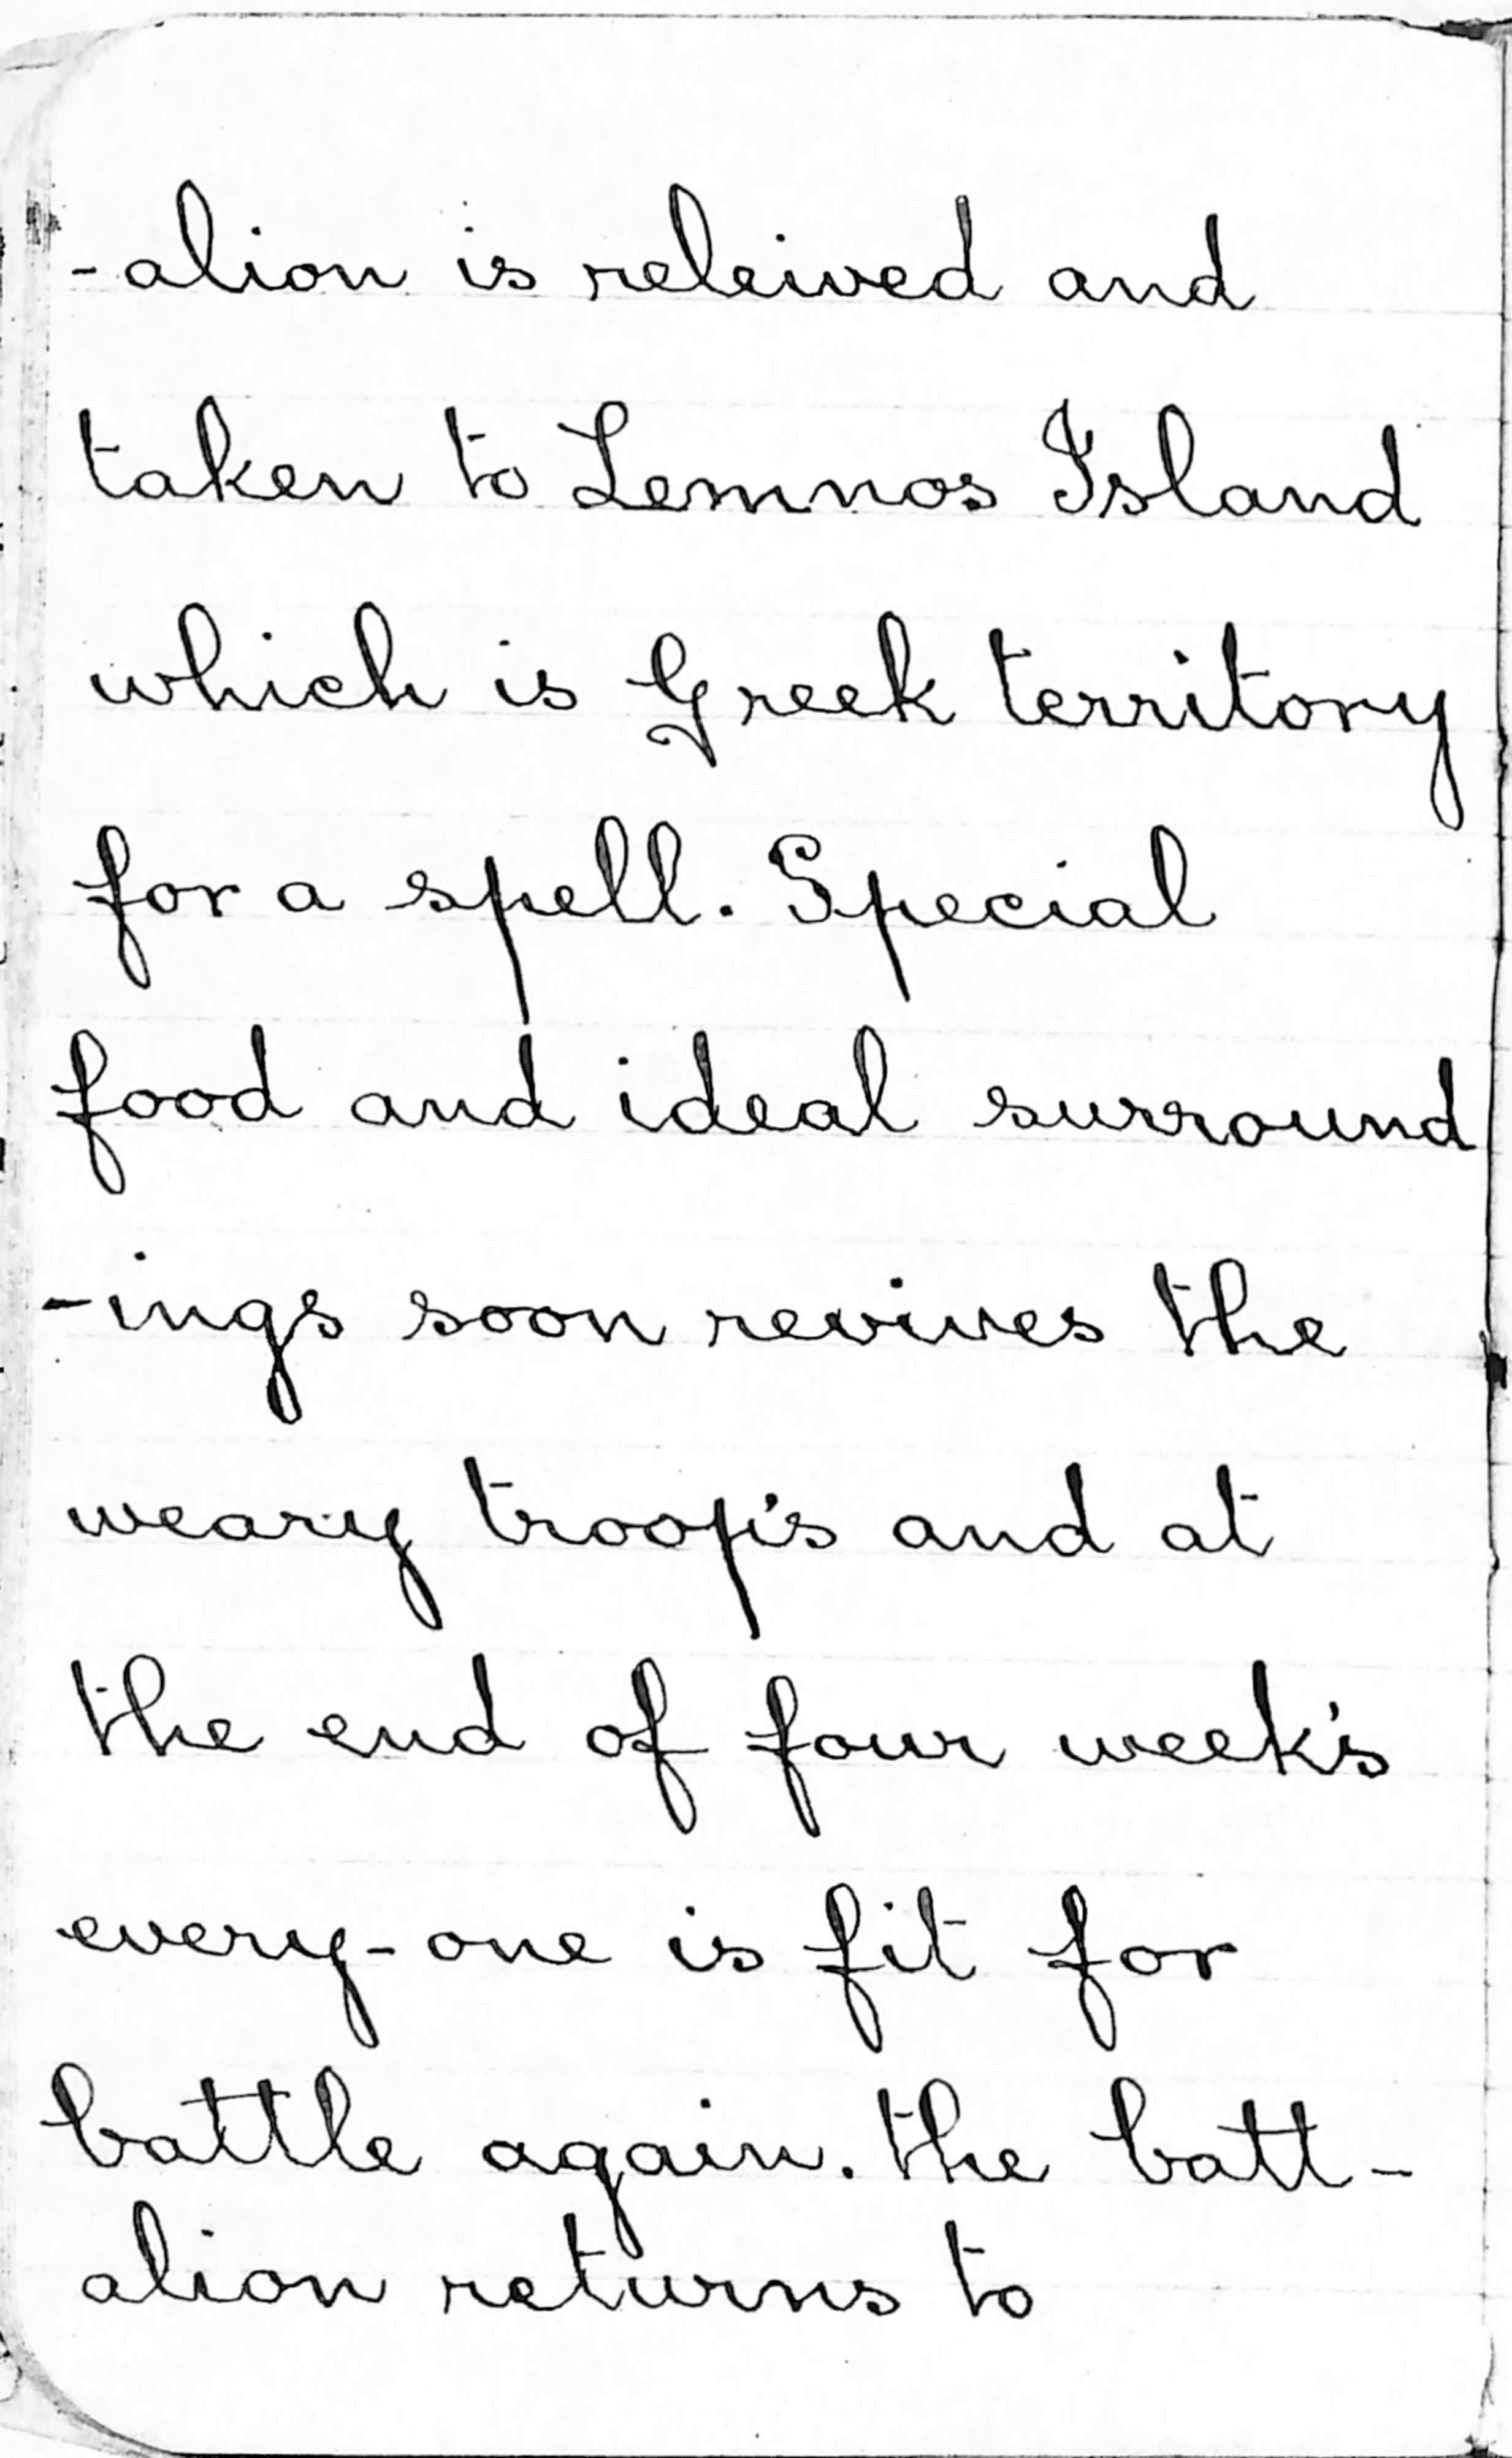 -alion is releived and
taken to Lemnos Island
which is Greek territory
for a spell. Special
food and ideal surround
-ings soon revives the
weary troop's and at
the end of four week's
every-one is fit for
battle again. the batt-
alion returns to